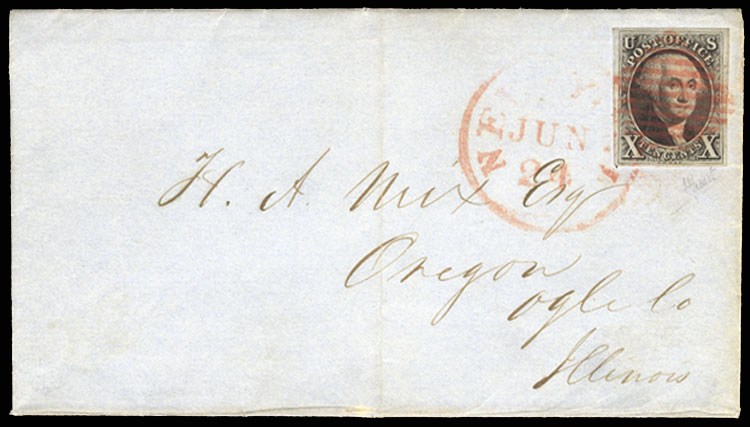 U S
POST OFFICE
X TEN CENTS X
NE
JUN
24
H. A. Nix Esq
Oregon
Ogle Co
Illinois